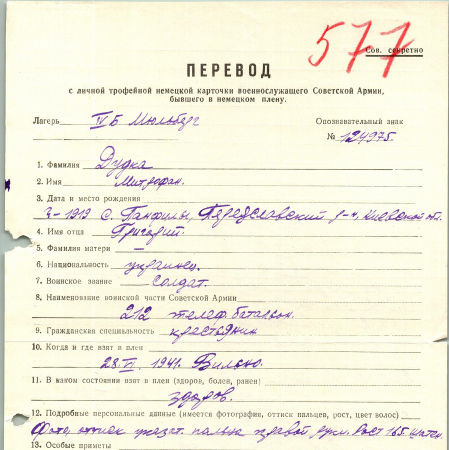 577
Сов. секретно
ПЕРЕВОД
с личной трофейной немецкой карточки военнослужащего Советской Армии,
бывшего в немецком плену.
Лагерь IV Б Мюльберг
Опознавательный знак
№ 124975.
1. Фамилия Дудка
2. Имя Митрофан.
3. Дата и место рождения
?-1919 с. Панфилы, Переяславский р-н, Киевской обл.
4. Имя отца Григорий.
5. Фамилия матери —
6. Национальность украинец.
7. Воинское звание солдат.
8. Наименование воинской части Советской Армии
212 телеф. батальон.
9. Гражданская специальность крестьянин
10. Когда и где взят в плен
28.VI.1941. Вильно.
11. В каком состоянии взят в плен (здоров, болен, ранен)
здоров.
12. Подробные персональные данные (имеется фотография, оттиск пальцев, рост, цвет волос)
Фото, оттиск указат. пальца правой руки. Рост 165. шатен.
13. Особые приметы